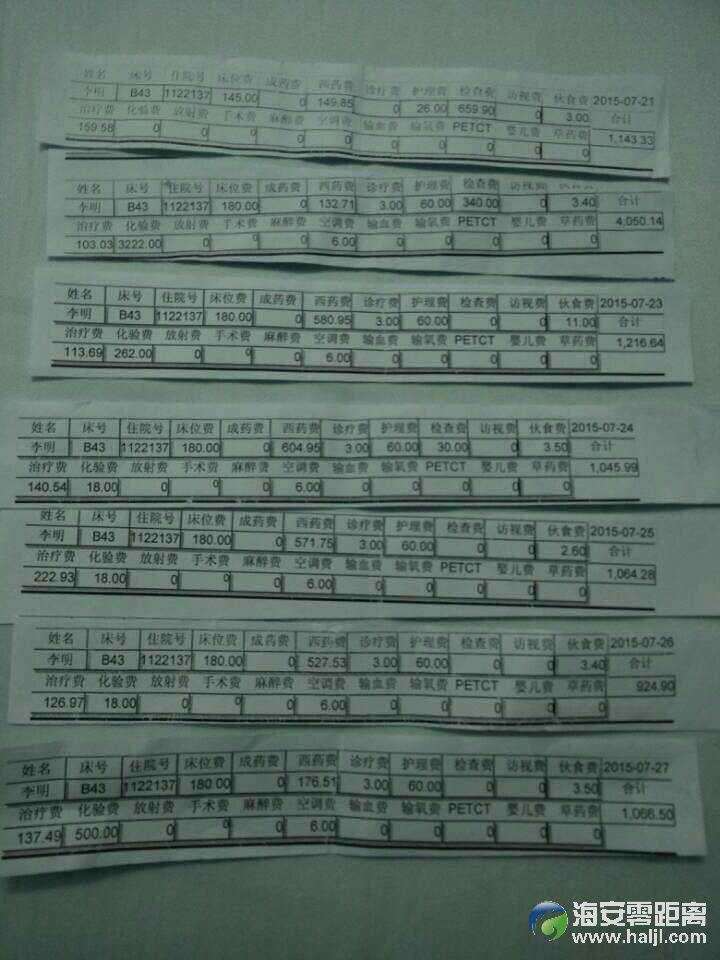 姓名 床号 住院号 床位费 成药费 西药费 诊疗费 护理费 检查费 访视费 伙食费 2015-07-21
李明 B43 1122137 145.00 0 149.85 0 26.00 659.90 0 3.00 合计
治疗费 化验费 放射费 手术费 麻醉费 空调费 输血费 输氧费 PETCT 婴儿费 草药费 1,143.33
159.58 0 0 0 0 0 0 0 0 0 0
姓名 床号 住院号 床位费 成药费 西药费 诊疗费 护理费 检查费 访视费 伙食费
李明 B43 1122137 180.00 0 132.71 3.00 60.00 340.00 0 3.40 合计
治疗费 化验费 放射费 手术费 麻醉费 空调费 输血费 输氧费 PETCT 婴儿费 草药费 4,050.14
103.03 3222.00 0 0 0 6.00 0 0 0 0 0
姓名 床号 住院号 床位费 成药费 西药费 诊疗费 护理费 检查费 访视费 伙食费 2015-07-23
李明 B43 1122137 180.00 0 580.95 3.00 60.00 0 0 11.00 合计
治疗费 化验费 放射费 手术费 麻醉费 空调费 输血费 输氧费 PETCT 婴儿费 草药费 1,216.64
113.69 262.00 0 0 0 6.00 0 0 0 0 0
姓名 床号 住院号 床位费 成药费 西药费 诊疗费 护理费 检查费 访视费 伙食费 2015-07-24
李明 B43 1122137 180.00 0 604.95 3.00 60.00 30.00 0 3.50 合计
治疗费 化验费 放射费 手术费 麻醉费 空调费 输血费 输氧费 PETCT 婴儿费 草药费 1,045.99
140.54 18.00 0 0 0 6.00 0 0 0 0 0
姓名 床号 住院号 床位费 成药费 西药费 诊疗费 护理费 检查费 访视费 伙食费 2015-07-25
李明 B43 1122137 180.00 0 571.75 3.00 60.00 0 0 2.60 合计
治疗费 化验费 放射费 手术费 麻醉费 空调费 输血费 输氧费 PETCT 婴儿费 草药费 1,064.28
222.93 18.00 0 0 0 6.00 0 0 0 0 0
姓名 床号 住院号 床位费 成药费 西药费 诊疗费 护理费 检查费 访视费 伙食费 2015-07-26
李明 B43 1122137 180.00 0 527.53 3.00 60.00 0 0 3.40 合计
治疗费 化验费 放射费 手术费 麻醉费 空调费 输血费 输氧费 PETCT 婴儿费 草药费 924.90
126.97 18.00 0 0 0 6.00 0 0 0 0 0
姓名 床号 住院号 床位费 成药费 西药费 诊疗费 护理费 检查费 访视费 伙食费 2015-07-27
李明 B43 1122137 180.00 0 176.51 3.00 60.00 0 0 3.50 合计
治疗费 化验费 放射费 手术费 麻醉费 空调费 输血费 输氧费 PETCT 婴儿费 草药费 1,066.50
137.49 500.00 0 0 0 6.00 0 0 0 0 0
海安零距离
www.haljl.com